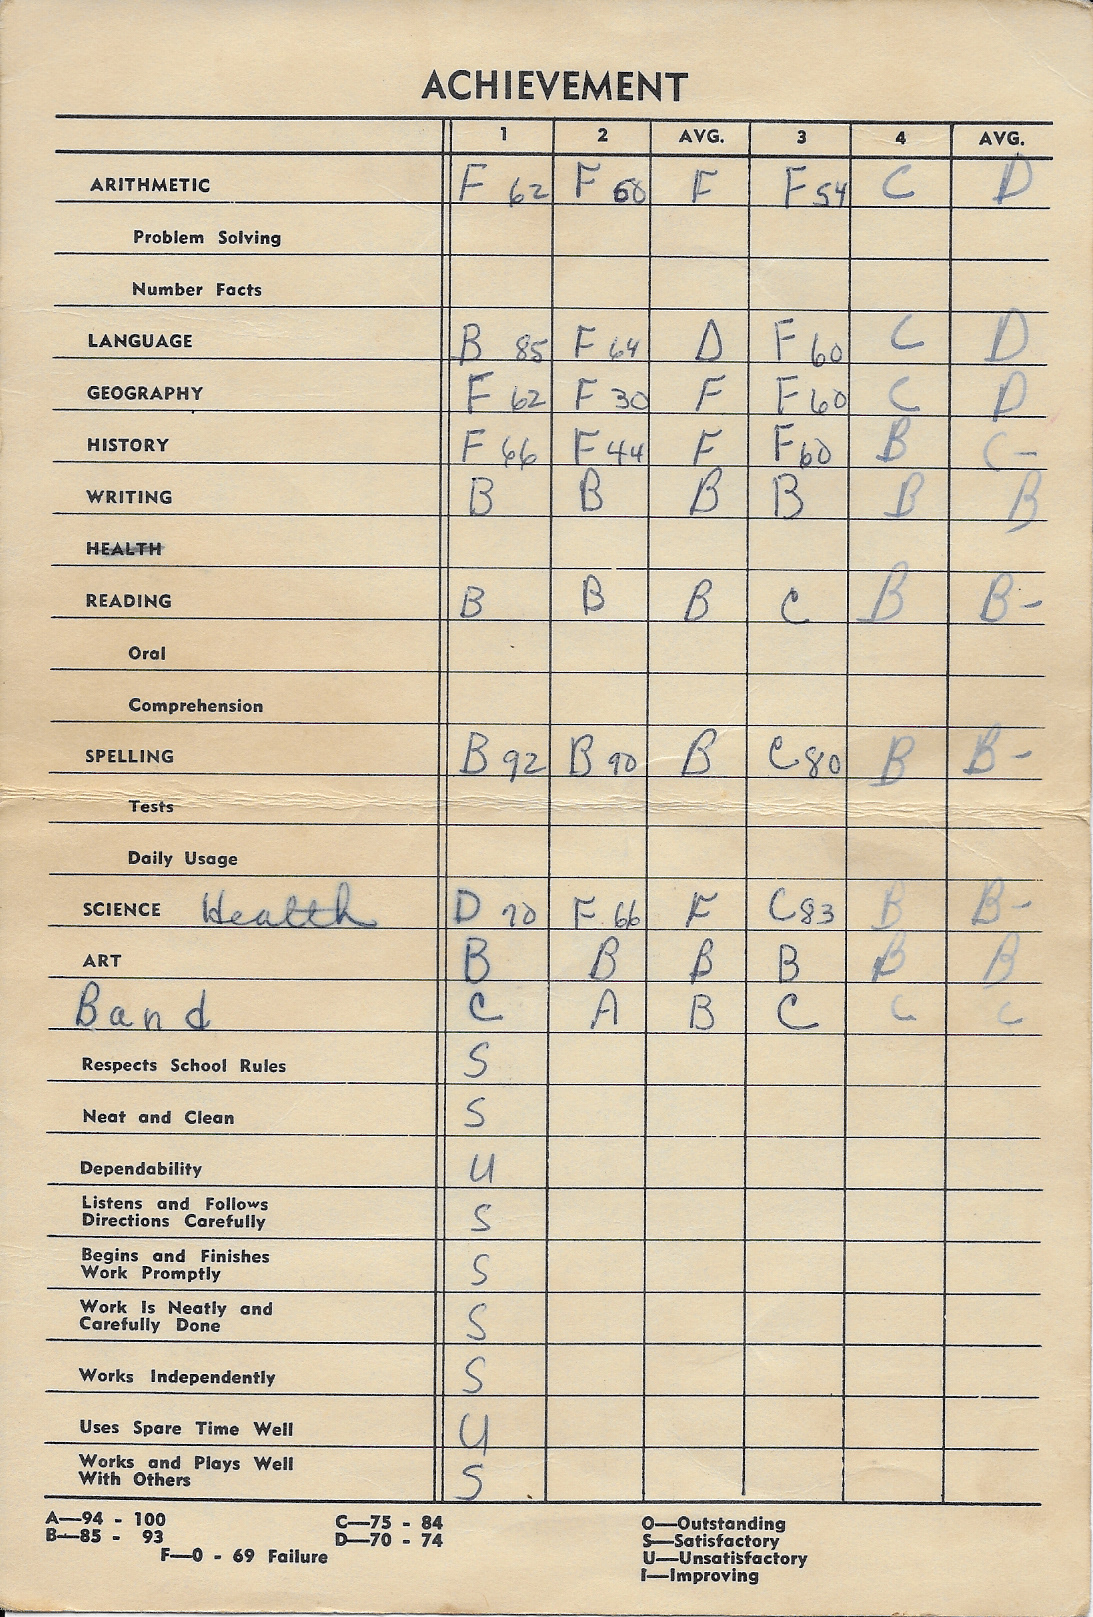 ACHIEVEMENT
1 2 AVG. 3 4 AVG.
ARITHMETIC F 62 F 60 F F 54 C D
Problem Solving
Number Facts
LANGUAGE B 85 F 64 D F 60 C D
GEOGRAPHY F 62 F 30 F F 60 C D
HISTORY F 66 F 44 F F 60 B C-
WRITING B B B B B B
HEALTH
READING B B B C B B-
Oral
Comprehension
SPELLING B 92 B 90 B C 80 B B-
Tests
Daily Usage
SCIENCE Health D 70 F 66 F C 83 B B-
ART B B B B B B
Band C A B C C C
Respects School Rules S
Neat and Clean S
Dependability U
Listens and Follows
Directions Carefully S
Begins and Finishes
Work Promptly S
Work Is Neatly and
Carefully Done S
Works Independently S
Uses Spare Time Well U
Works and Plays Well
With Others S
A—94 - 100 C—75 - 84 O—Outstanding
B—85 - 93 D—70 - 74 S—Satisfactory
F—0 - 69 Failure U—Unsatisfactory
I—Improving